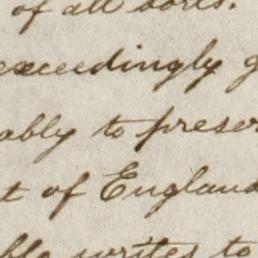 of all sorts.
exceedingly g
ably to preser
t of England
ble writes to